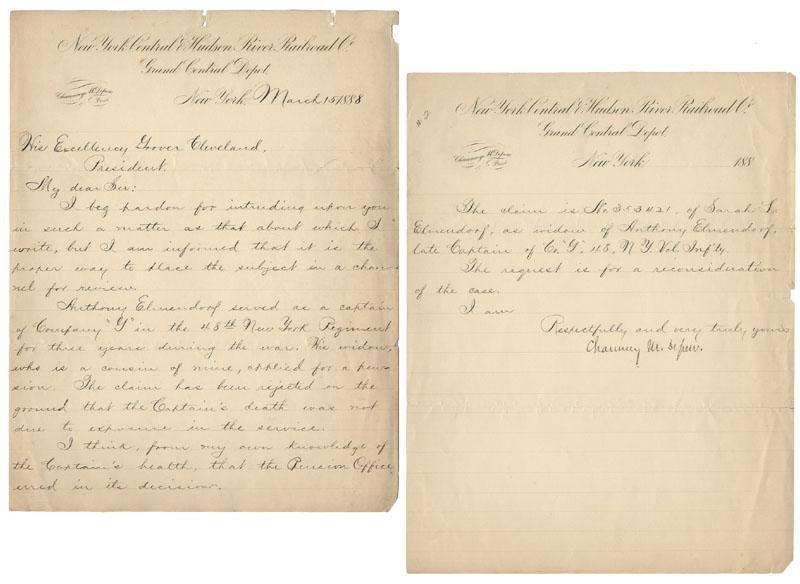 New York Central & Hudson River Railroad Co.
Grand Central Depot,
Chauncey M. Depew
Prest.
New York, March 15 1888
His Excellency Grover Cleveland,
President.
My dear Sir:
I beg pardon for intruding upon you
in such a matter as that about which I
write, but I am informed that it is the
proper way to place the subject in a chan-
nel for review.
Anthony Elmendorf served as a captain
of Company "G" in the 48th New York Regiment
for three years during the war. His widow,
who is a cousin of mine, applied for a pen-
sion. The claim has been rejected on the
ground that the Captain's death was not
due to exposure in the service.
I think, from my own knowledge of
the Captain's health, that the Pension Office
erred in its decision.
#2
New York Central & Hudson River Railroad Co.
Grand Central Depot,
Chauncey M. Depew
Prest.
New York 188
The claim is No. 353421, of Sarah L.
Elmendorf, as widow of Anthony Elmendorf,
late Captain of Co. "G", 48, N.Y. Vol. Inf'ty.
The request is for a reconsideration
of the case.
I am
Respectfully and very truly yours
Chauncey M. Depew.